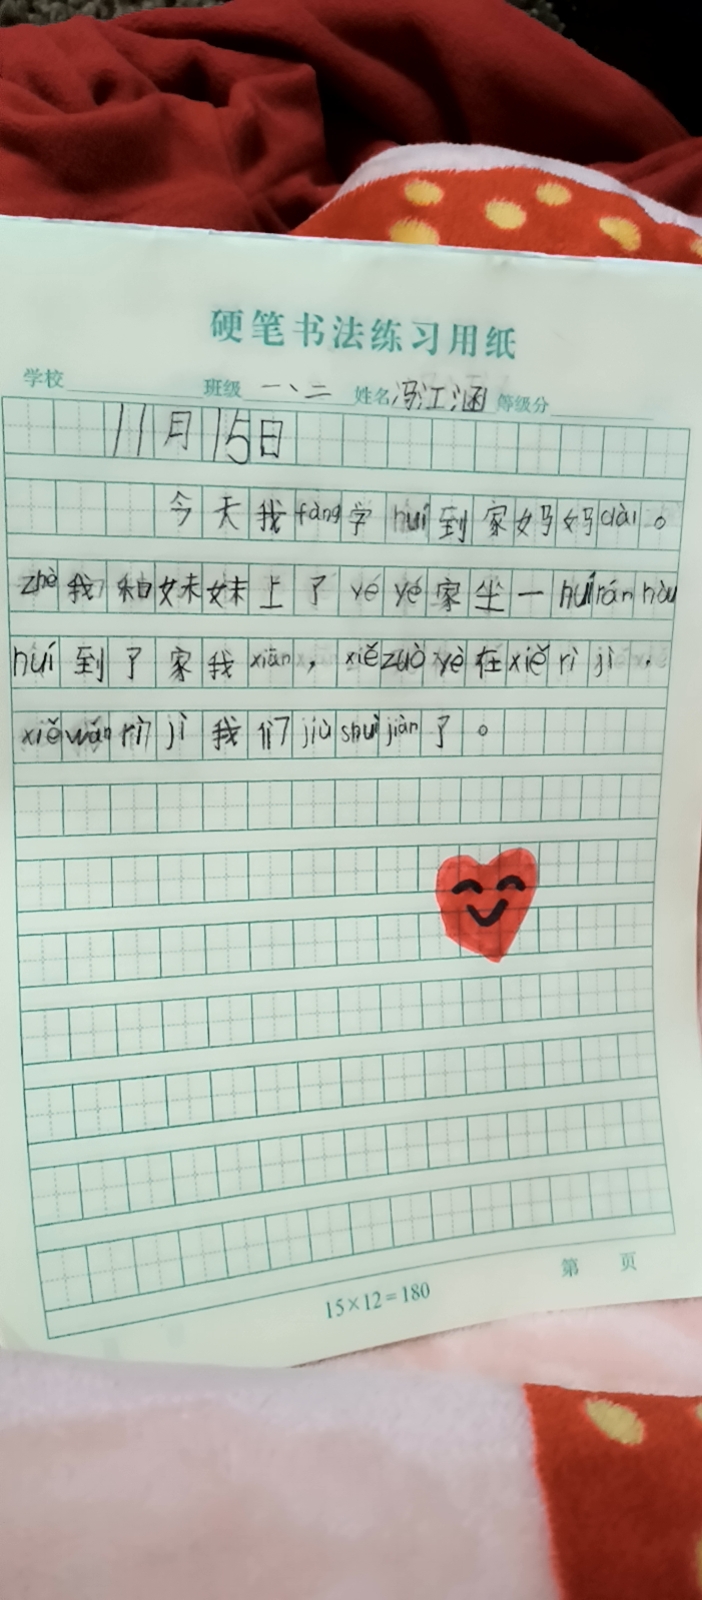 硬笔书法练习用纸
学校 班级 一、二 姓名 冯江涵 等级分
11月15日
今天我fàng学huí到家妈妈dài。
zhè我和妹妹上了yé yé家坐一huìrán hòu
huí到了家我xiān，xiě zuò yè在xiě rì jì，
xiě wán rì jì我们jiù shuì jiàn了。
15×12=180
第 页